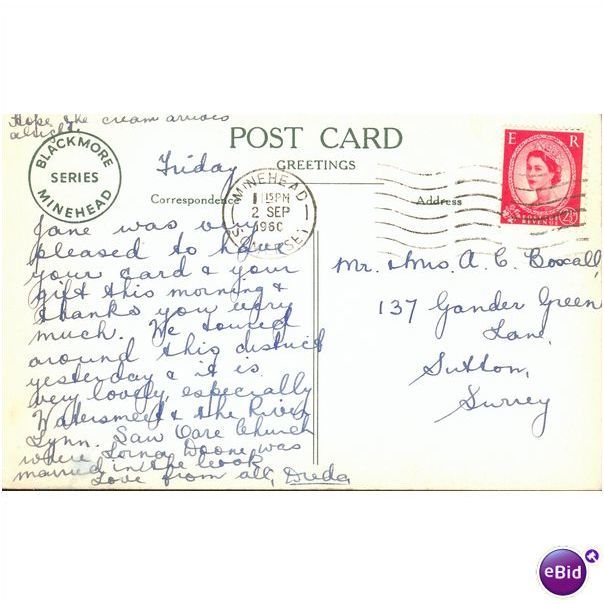 Hope the cream arrives
alright.
BLACKMORE
SERIES
MINEHEAD
POST CARD
GREETINGS
Friday
Correspondence
Address
MINEHEAD
1 15PM
2 SEP
1960
SOMERSET
E R
2½
Jane was very
pleased to have
your card & your
gift this morning &
thanks you very
much. We toured
around this district
yesterday & it is
very lovely, especially
Watersmeet & the River
Lynn. Saw Oare Church
where Lorna Doone was
married in the book.
Love from all,
Mr. & Mrs. A. C. Boxall,
137 Gander Green
Lane,
Sutton,
Surrey
eBid